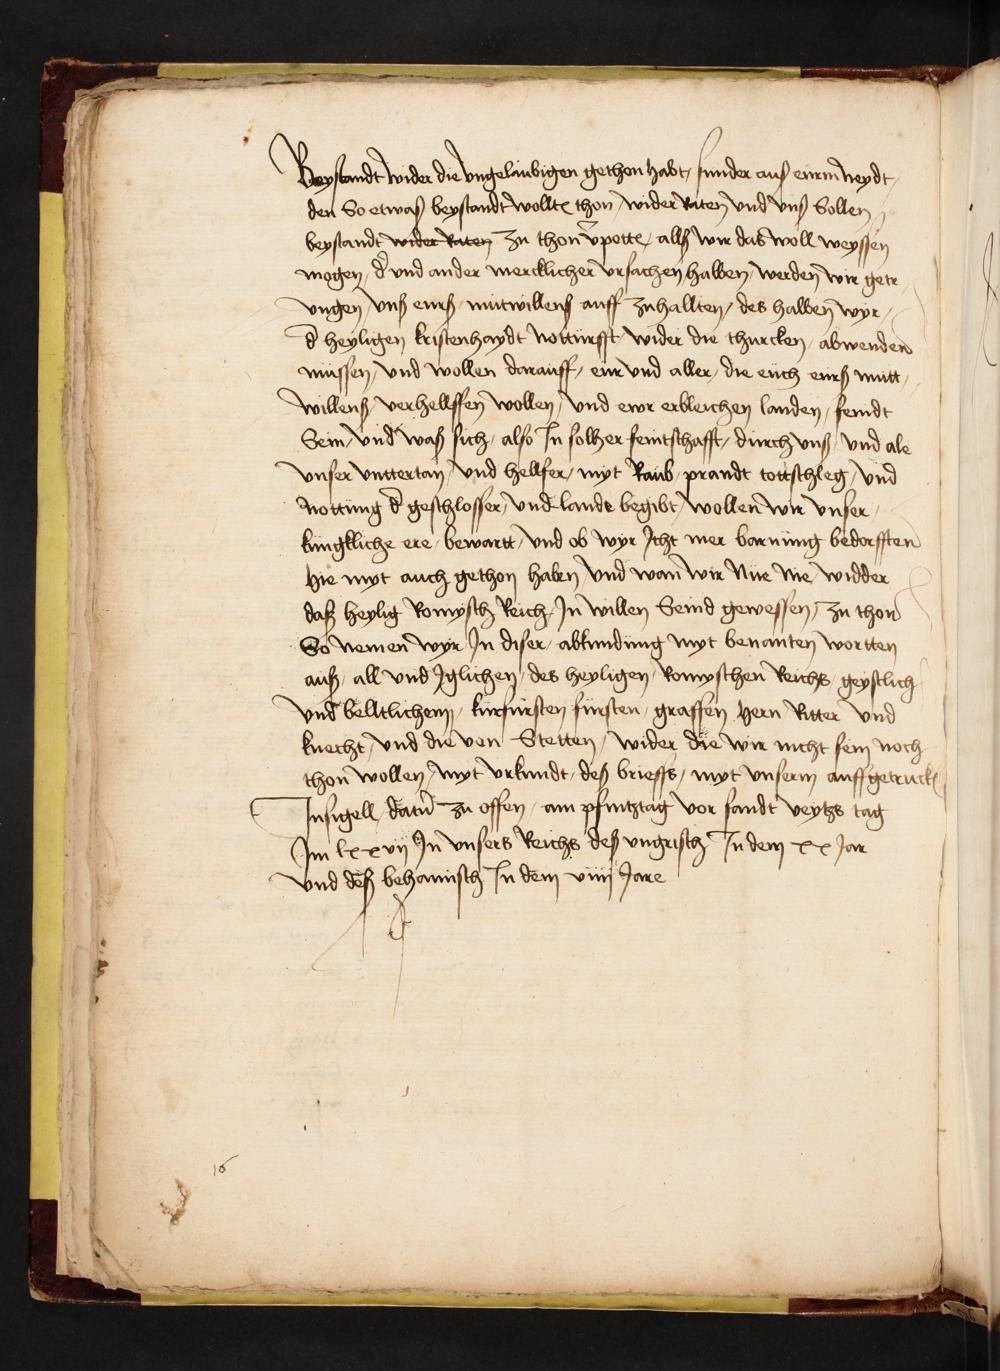 Beystandt wider die vngelaubigen gethon habt, sunder auß eurm neydt,
den So etwaß beystandt wollte thon, wider Raten vnd vns Sollen
beystandt wider Raten zu thon v̄potte, allß wir das woll weyssen
mogen, d̄ vnd ander mercklicher vrsachen halben, werden wir getr,
vngen, vnß eurß, mutwillenß auff zuhallten, des halben wyr,
d̄ heyligen kristenhaydt notturfft wider die thurcken, abwenden
mussen, vnd wollen darauff, eur vnd aller, die euch eurß mutt,
willenß, verhellffen wollen, vnd ewr erbleichen landen, feindt
Sein, vnd waß sich, also In solher feintschafft, durch vnß, vnd ale
vnser vnttertan, vnd hellfer, myt Raub, prandt tottschleg, vnd
nottung d̄ geschlosser, vnd lande begibt, wollen wir vnser,
kungkliche ere, bewartt, vnd ob wyr Icht mer barnung bedorfften
hie myt auch gethon haben vnd wan wir Nue Nie, widder
daß heylig Romysch Reich, In willen Seind gewessen, zu thon
So nemen wyr In diser, abkundung myt benanten wortten
auß, all vnd Iglichen, des heyligen, Romyschen Reichs, geystlich
vnd belltlichem, kurfursten fursten, graffen hern Ritter vnd
knecht, vnd die von Stetten, wider die wir nicht sein noch
thon wollen, myt vrkundt, deß brieffs, myt vnserm auffgetruckt
Insigell, datū zu offen, am pfintztag vor sandt veytzs tag
Im lxxvij In vnsers Reichs deß vngrisch In dem xx Jar
vnd deß behamisch In dem viiij Jare
16